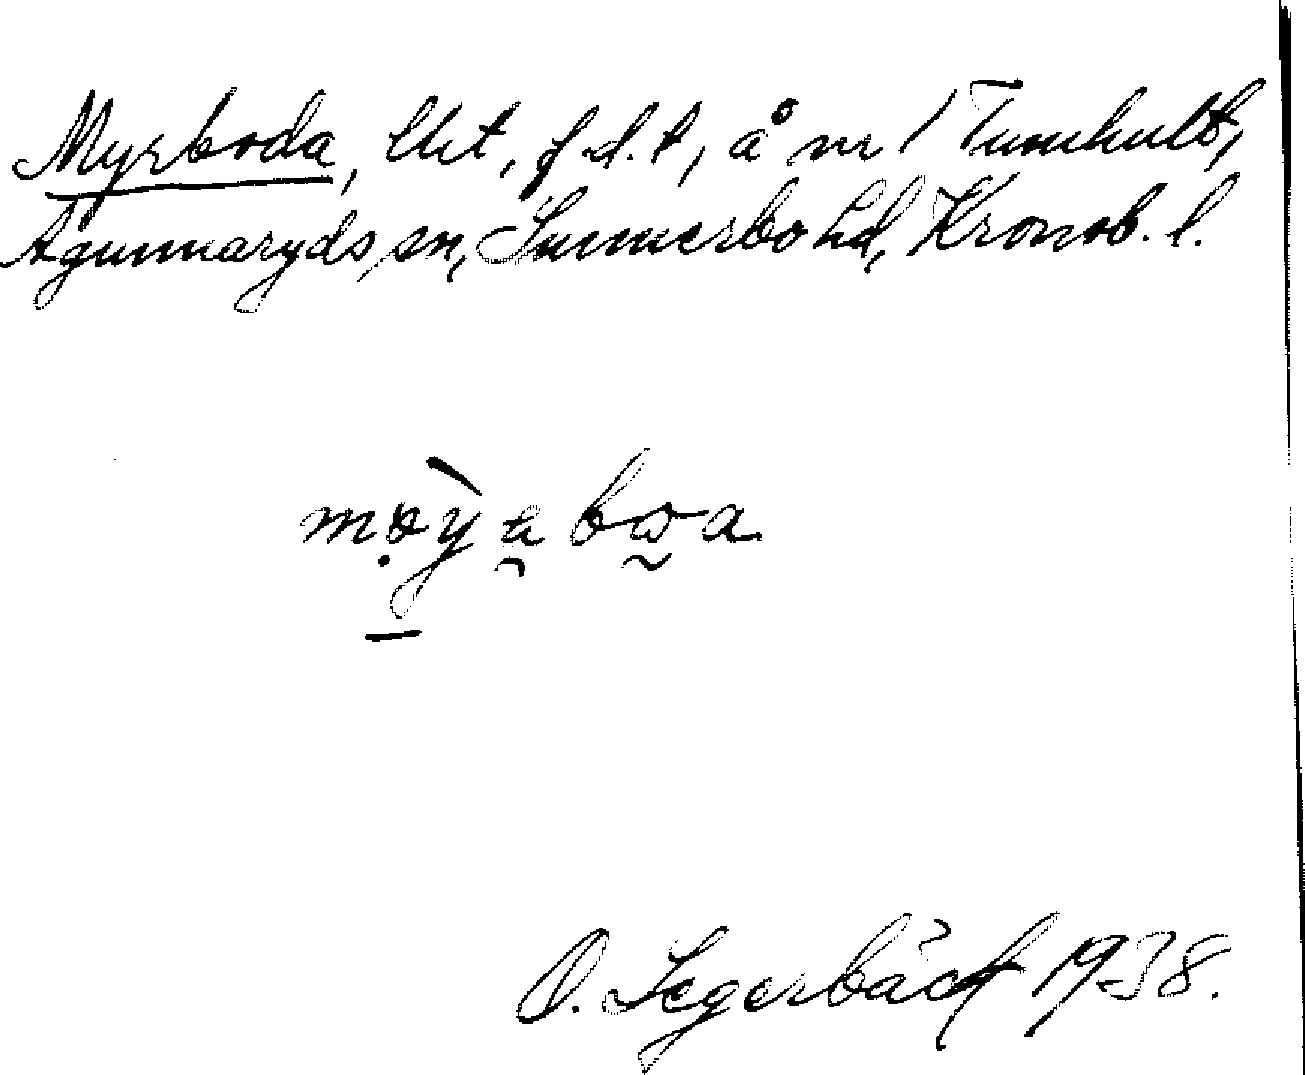 Myrboda, lht, f.d.t, å nr 1 Tumhult,
Agunnaryds sn, Sunnerbo hd, Kronob. l.
O. Segerbäck 1938.